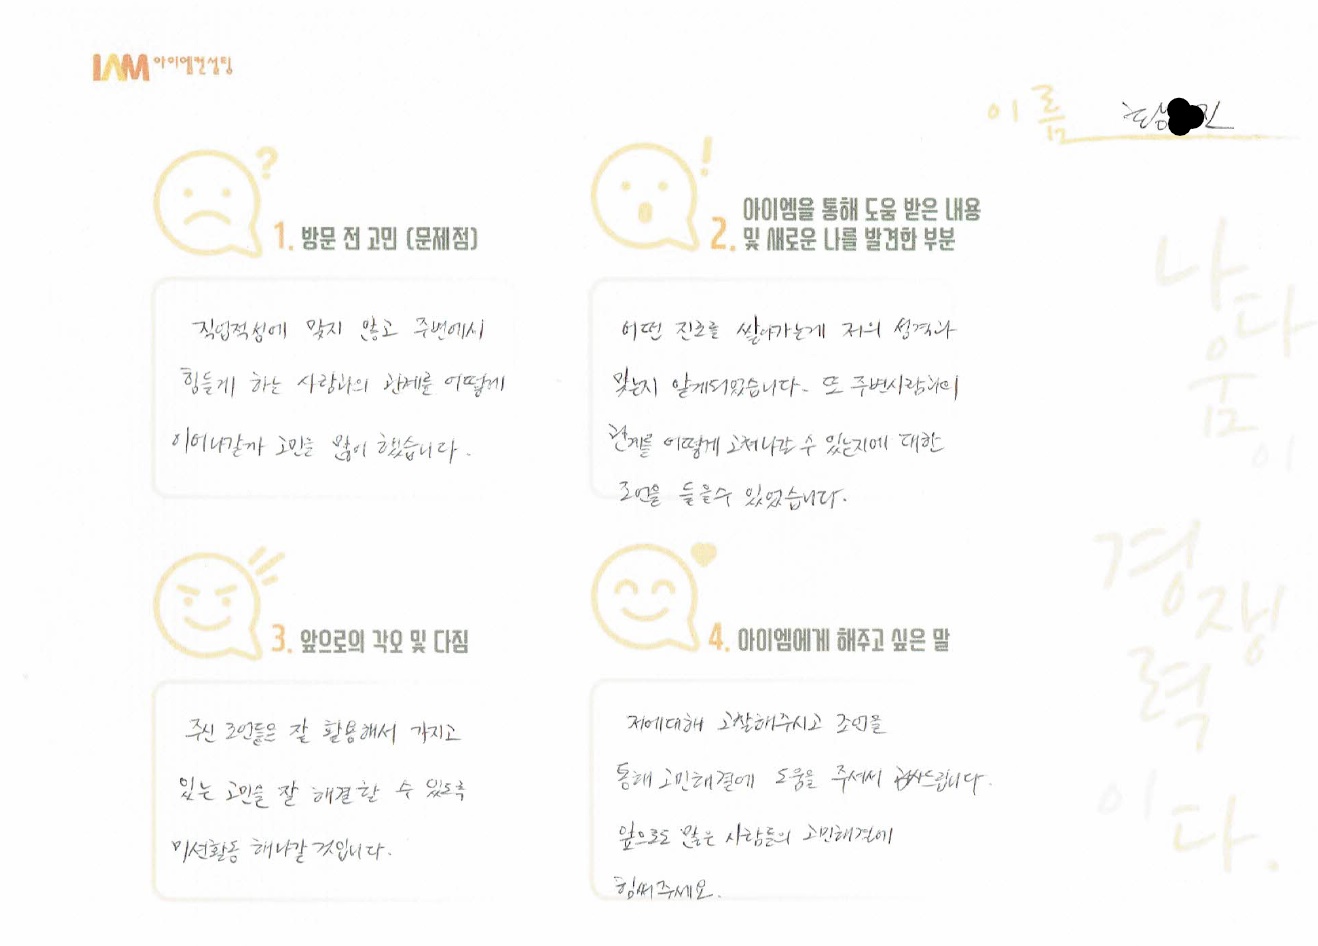 IAM 아이엠컨설팅
이름
1. 방문 전 고민 (문제점)
직업적성에 맞지 않고 주변에서
힘들게 하는 사람과의 관계를 어떻게
이어나갈까 고민을 많이 했습니다.
2. 아이엠을 통해 도움 받은 내용
및 새로운 나를 발견한 부분
어떤 진로를 쌓아가는게 저의 성격과
맞는지 알게되었습니다. 또 주변사람과의
관계를 어떻게 고쳐나갈 수 있는지에 대한
조언을 들을수 있었습니다.
3. 앞으로의 각오 및 다짐
주신 조언들은 잘 활용해서 가지고
있는 고민을 잘 해결할 수 있도록
미션활동 해나갈 것입니다.
4. 아이엠에게 해주고 싶은 말
저에대해 고찰해주시고 조언을
통해 고민해결에 도움을 주셔서 감사드립니다.
앞으로도 많은 사람들의 고민해결에
힘써주세요.
나다움이
경쟁력이다.